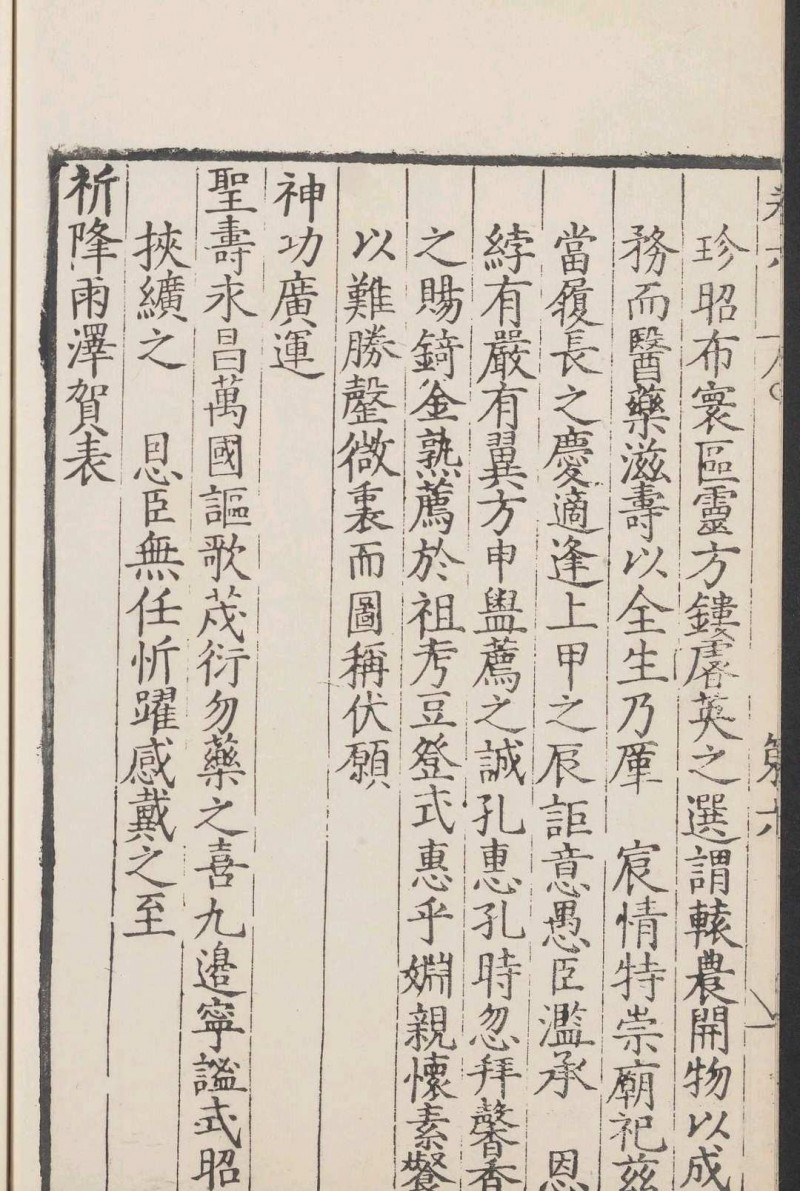 卷六
第六
珍昭布寰區靈方鏤壽英之選謂轅農開物以成
務而醫藥滋壽以全生乃厪　宸情特崇廟祀茲
當履長之慶適逢上甲之辰詎意愚臣濫承　恩
綍有嚴有翼方申盥薦之誠孔惠孔時忽拜馨香
之賜錡釜熟薦於祖考豆登式惠乎婣親懷素餐
以難勝罄微衷而圖稱伏願
神功廣運
聖壽永昌萬國謳歌茂衍勿藥之喜九邊寧謐式昭
挾纊之　恩臣無任忻躍感戴之至
祈降雨澤賀表